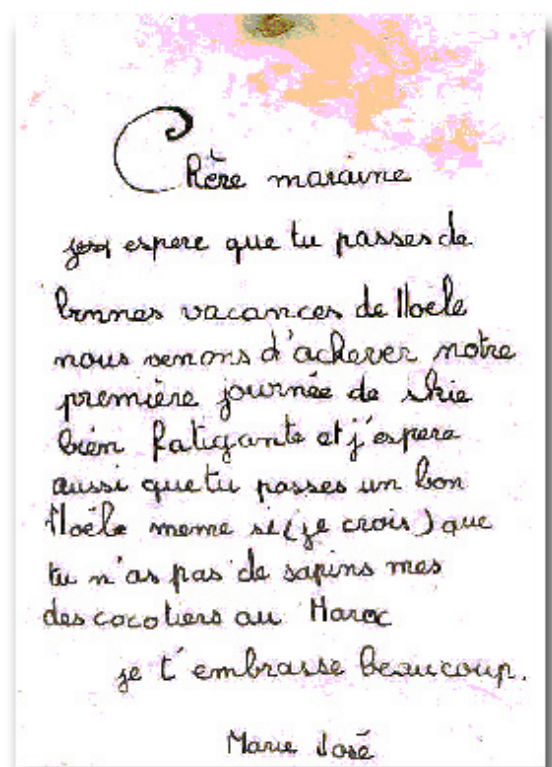 Chère maraine
espere que tu passes de
bonnes vacances de Noële
nous venons d'achever notre
première journée de skie
bien fatigante et j'espere
aussi que tu passes un bon
Noële meme si (je crois) que
tu n'as pas de sapins mes
des cocotiers au Maroc
je t'embrasse beaucoup.
Marie José